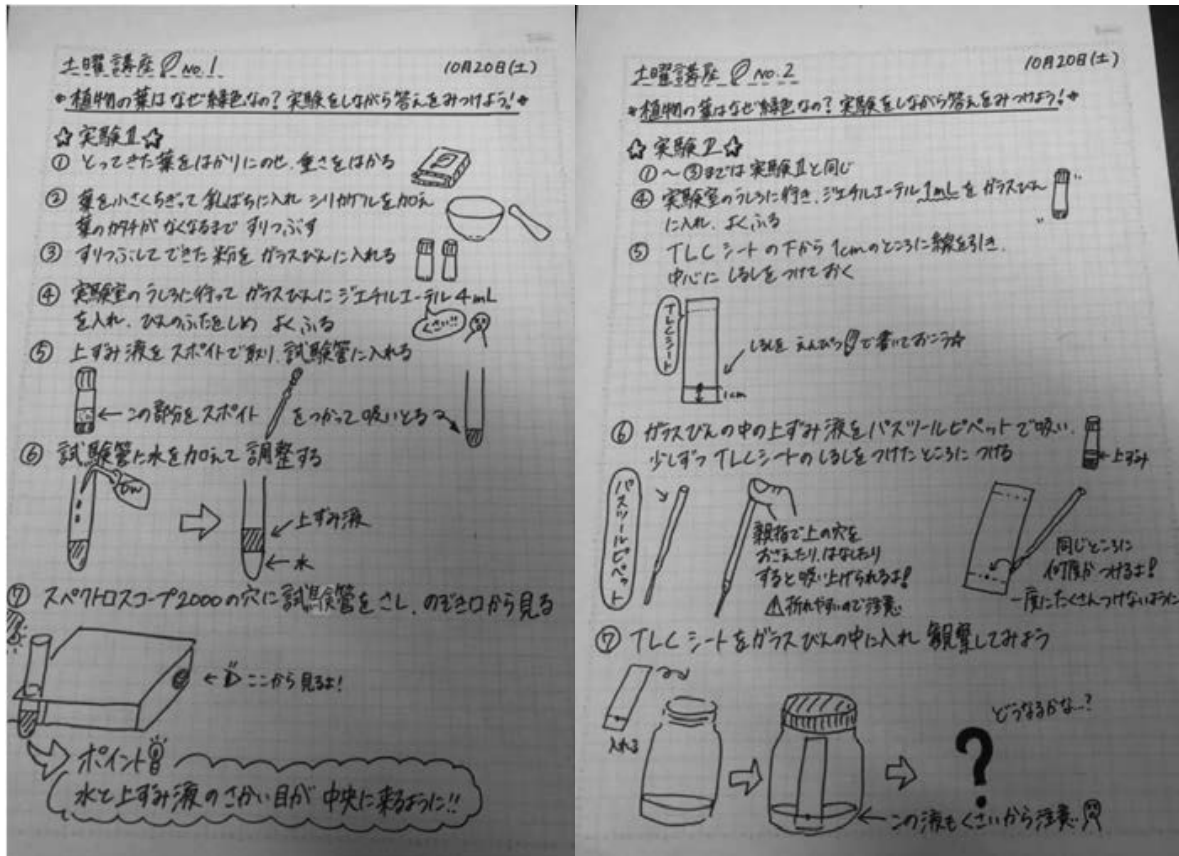 土曜講座 No.1
10月20日(土)
植物の葉はなぜ緑色なの?実験をしながら答えをみつけよう!
☆実験Ⅱ☆
① とってきた葉をはかりにのせ、重さをはかる
② 葉を小さくちぎって乳ばちに入れ シリカゲルを加え
葉のカタチがなくなるまで すりつぶす
③ すりつぶしてできた粉をガラスびんに入れる
④ 実験室のうしろに行って ガラスびんに ジエチルエーテル 4mL
を入れ、びんのふたをしめ よくふる
くさい!!
⑤ 上ずみ液をスポイトで取り、試験管に入れる
←この部分をスポイト をつかって吸いとる
⑥ 試験管に水を加えて調整する
←上ずみ液
←水
⑦ スペクトロスコープ2000の穴に試験管をさし、のぞき口から見る
←ここから見るよ!
ポイント
水と上ずみ液のさかい目が中央に来るように!!
土曜講座 No.2
10月20日(土)
植物の葉はなぜ緑色なの?実験をしながら答えをみつけよう!
☆実験
①〜③までは実験Ⅱと同じ
④ 実験室のうしろに行き、ジエチルエーテル 1mLを ガラスびん
に入れ、よくふる
⑤ TLCシートの下から1cmのところに線を引き、
中心にしるしをつけておく
TLCシート
しるしを えんぴつで書いておこう☆
1cm
⑥ ガラスびんの中の上ずみ液をパスツールピペットで吸い、
少しずつTLCシートのしるしをつけたところにつける
←上ずみ
パスツールピペット
親指で上の穴を
おさえたり、はなしたり
すると吸い上げられるよ!
⚠折れやすいので注意
同じところに
何度かつけるよ!
一度にたくさんつけないように
⑦ TLCシートをガラスびんの中に入れ 観察してみよう
入れる
どうなるかな…?
?
←この液もくさいから注意